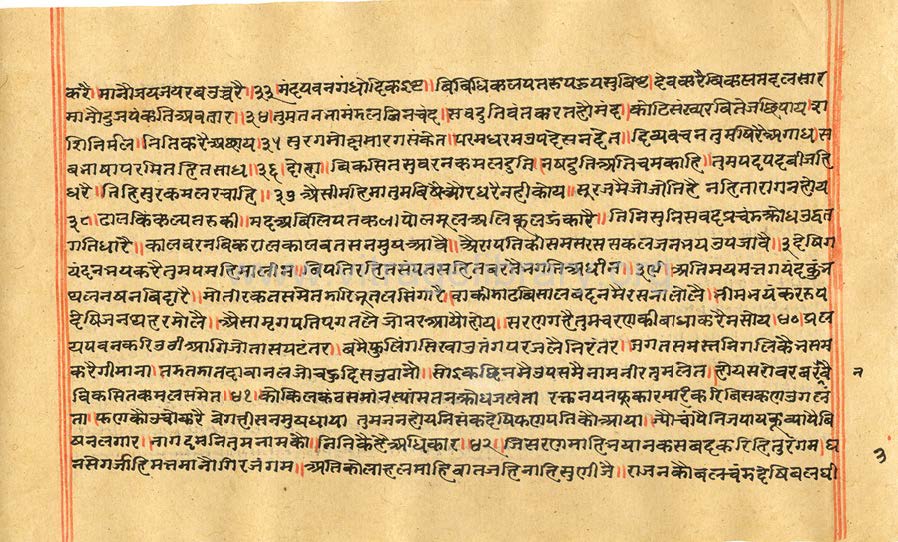 करै॥मानौजयजयरवउच्चरै॥३३मंदपवनगंधोदिकइष्ट॥बिबिधिकलपतरुपहुपसुबिष्ट॥देवकरैबिकसतदलसार
मानौदुजपंकतिअवतार॥३४तुमतनभामंडलजिनचंद॥सबदुतिवंतकरतहैमंद॥कोटिसंखरवितेजछिपाय॥श
शिनिर्मल॥निसिकरैअछाय३५सुरगमोक्षमारगसंकेत॥परमधरमउपदेसनहेत॥दिव्यवचनतुमषिरैअगाध॥स
बभाषापरभितहितसाध॥३६॥दोहा॥बिकसितसुवरनकमलदुति॥नषदुतिअतिचमकाहि॥तुमपदपदबीजहि
धरै॥तिहिसुरकमलरचाहि॥३७असीमहिमातुमबिषैऔरधरैनहीकोय॥सूरजमैजोजोतिहै नहितारागनहोय
३८ढालकिकल्पतरुकी॥मदअबिलिपतकलापोलमूलअलिकुलझंकारै॥तिनिसुनिसबदप्रचंडक्रोधउद्धत
गतिधारै॥कालबरनबिकरालकालवतसनमुषआवै॥औरापतिकीसमसरससकलजनभयउपजावै॥३देषिग
यंदनभयकरैतुमपदमहिमालीन॥विपतिरहितसंपतसहितबरतैभगतिअधीन॥३९॥अतिमयमत्तगयंदकुंभ
थलनषनबिदारै॥मोतीरकतसमेतमारिभूतलसिंगारै॥वाकीदाढबिसालबदनमैरसनालोलै॥भीमभयंकररूप
देषिजनथरहरमोलै॥असामृगपतिपगतलैजोनरआयौहोय॥सरणगहैतुमचरणकीबाधाकरैनसोय॥४०॥प्रल
यपवनकरिउवीआगिजोतासपटंतर॥बमैफुलिंगसिखाउतंगपरजलैनिरंतर॥जगतसमस्तनिगलिकेभसम
करैगीमाना॥तडतडातदावानलजोचहुदिसउवानो॥सोइकछिनमैउपसमैनामनीरतुमलेत॥होयसरोवरबरमै
बिकसितकमलसमेत॥४१॥कोकिलकंवसमानस्यांमतनक्रोधजलता रक्तनयनफूंकारमारिकरिबिसकणउगलं
ता॥फणकौउचोकरै बेगहीसनमुषधाया॥तुमजनहोयनिसंकदेषिफणपतिकौआया॥
बिषनलगार॥नागदमनितुमनामकी॥तिनिकैहैअधिकार॥४२॥जिसरणमाहिभयानकसबदकरिहितुरंगम॥घ
नसेगर्जहिमत्तमानौगिरजंगम॥अतिकोलाहलमाहिबातजहिनाहिसुणीजै॥राजनकौबलचंडदेषिबलधी
३